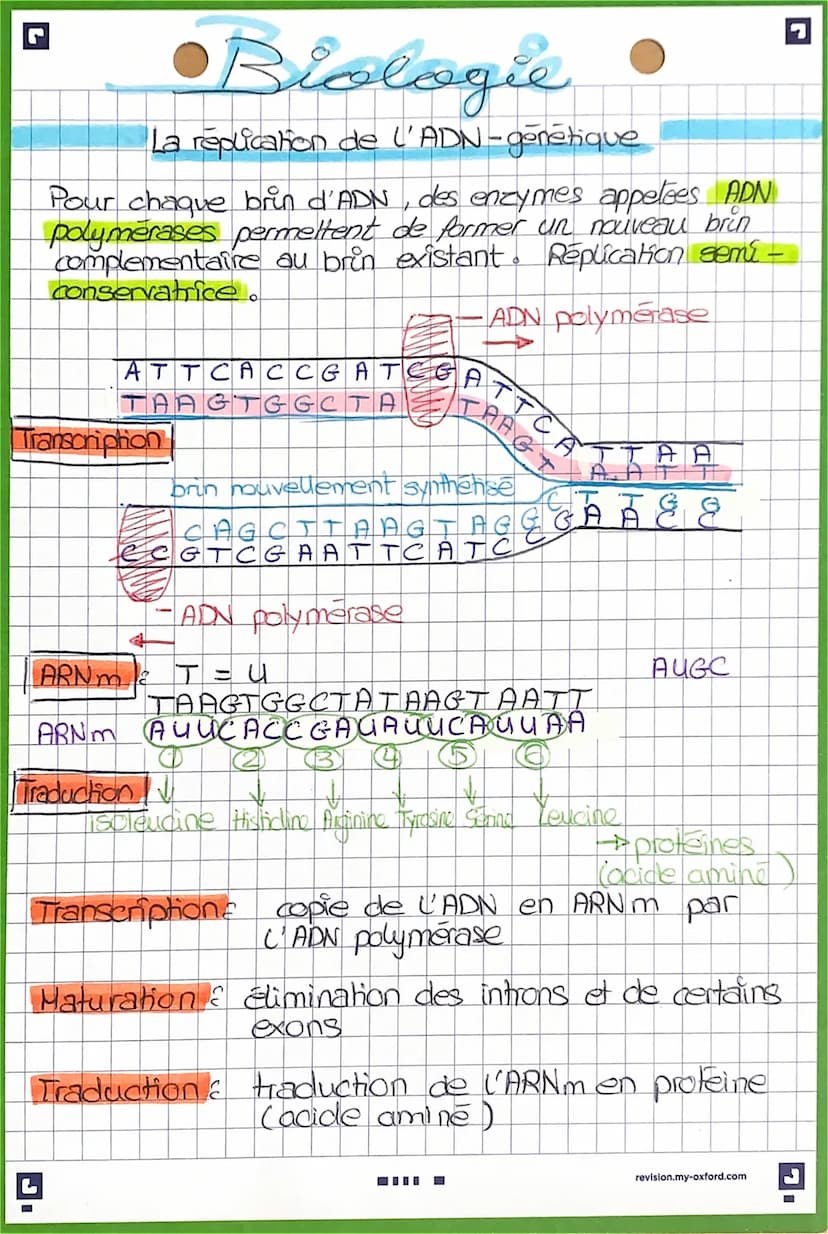 Biologie
La réplication de l'ADN-génétique
Pour chaque brin d'ADN, des enzymes appelées ADN
polymérases permettent de former un nouveau brin
complémentaire au brin existant. Réplication semi-
conservatrice.
ADN polymérase
ATTCACCGATCGATTCATTAA
TAAGTGGCTATAAGTAATT
Transcription
brin nouvellement synthétisé
CAGCTTAAGTAGGCTTGG
CCGTCGAATTCATCCGAACC
ADN polymérase
ARNm : T = U
AUGC
TAAGTGGCTATAAGTAATT
ARNm AUUCACCGAUAUUCAUUAA
1 2 3 4 5 6
Traduction
isoleucine Histidine Arginine Tyrosine Sérine Leucine
→ protéines
(acide aminé)
Transcription : copie de l'ADN en ARNm par
l'ADN polymérase
Maturation : élimination des introns et de certains
exons
Traduction : traduction de l'ARNm en protéine
(acide aminé)
revision.my-oxford.com